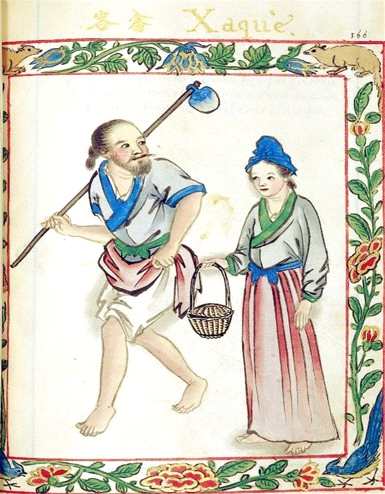 客畲 Xaquè.
166